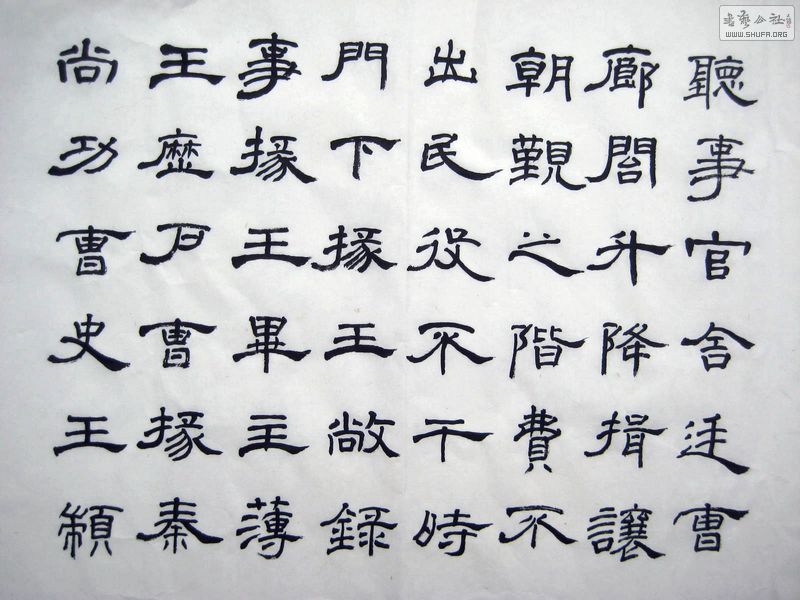 聽事官舍廷曹
廊閤升降揖讓
朝覲之階費不
出民役不干時
門下掾王敞錄
事掾王畢主薄
王歷戶曹掾秦
尚功曹史王顓
书藝公社
WWW.SHUFA.ORG